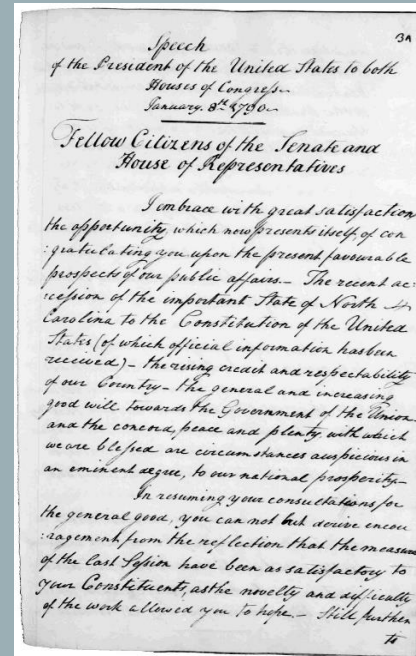 3A
Speech
of the President of the United States to both
Houses of Congress
January. 8th 1790
Fellow Citizens of the Senate and
House of Representatives
I embrace with great satisfaction
the opportunity, which now presents itself, of con
:gratulating you upon the present favourable
prospects of our public affairs. – The recent ac:
:cession of the important State of North
Carolina to the Constitution of the United
States (of which official information has been
received) – the rising credit and respectability
of our Country – the general and increasing
good will towards the Government of the Union.
and the concord, peace and plenty, with which
we are blessed are circumstances auspicious in
an eminent degree, to our national prosperity –
In resuming your consultations for
the general good, you can not but derive encou
:ragement from the reflection that the measures
of the last Session have been as satisfactory to
your Constituents, as the novelty and difficulty
of the work allowed you to hope. – Still further
to